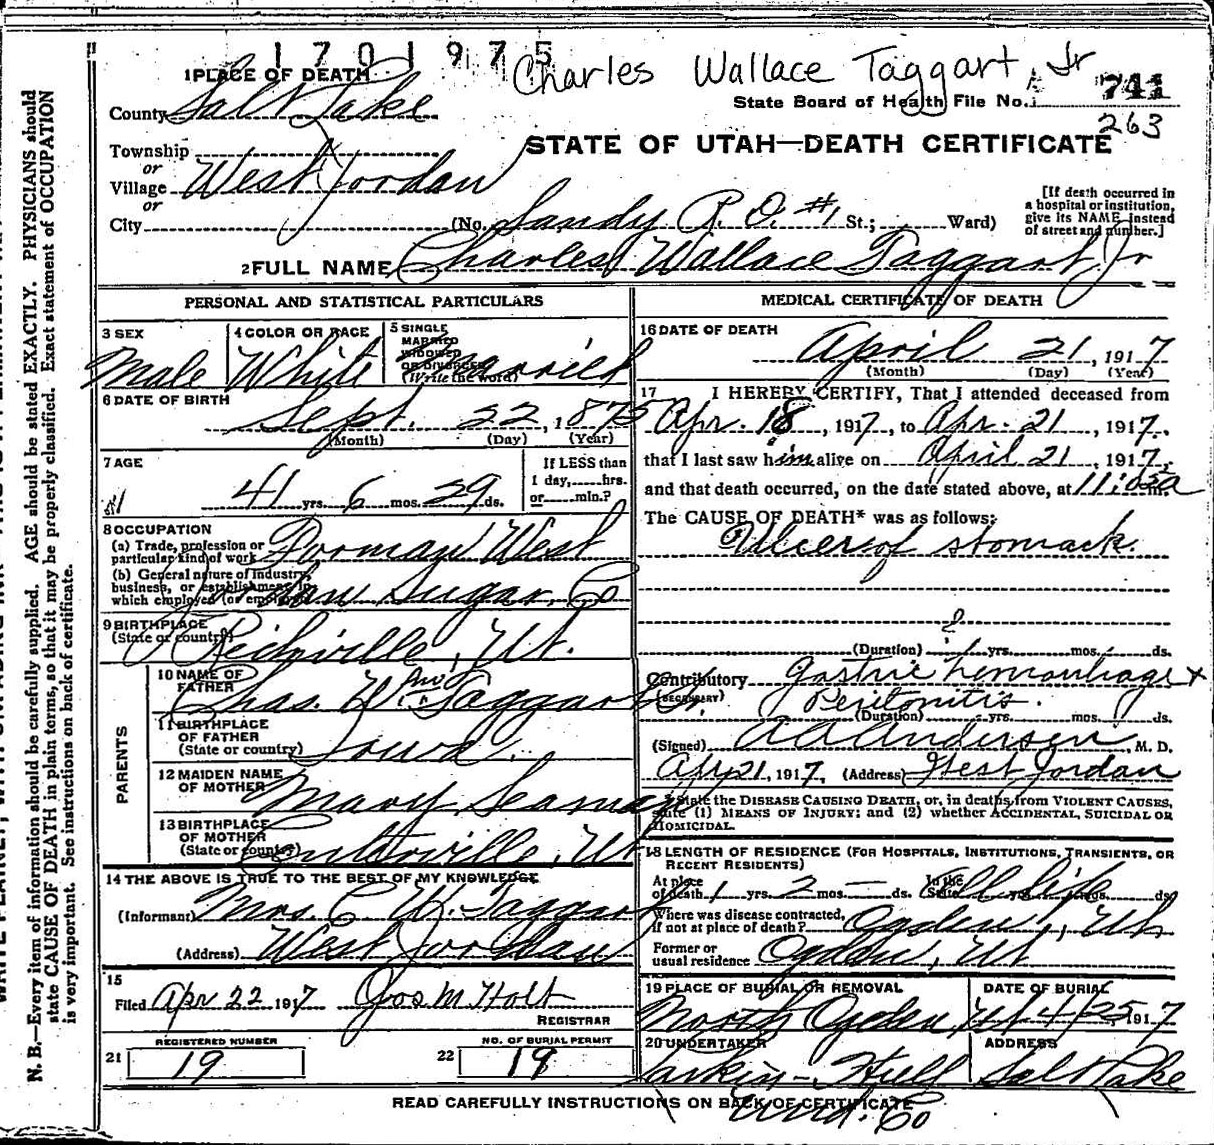 1701975
Charles Wallace Taggart, Jr
1 PLACE OF DEATH
County Salt Lake
State Board of Health File No. 741
263
STATE OF UTAH—DEATH CERTIFICATE
Township
or
Village West Jordan
or
City (No. Sandy R.D. #1 St.; Ward)
[If death occurred in
a hospital or institution,
give its NAME instead
of street and number.]
2 FULL NAME Charles Wallace Taggart Jr
PERSONAL AND STATISTICAL PARTICULARS
3 SEX
Male
4 COLOR OR RACE
White
5 SINGLE
MARRIED
WIDOWED
OR DIVORCED
(Write the word)
Married
6 DATE OF BIRTH
Sept. 22, 1875
(Month) (Day) (Year)
7 AGE
41 yrs. 6 mos. 29 ds.
If LESS than
1 day, hrs.
or min.?
8 OCCUPATION
(a) Trade, profession or
particular kind of work Forman West
(b) General nature of industry,
business, or establishment in
which employed (or employer) Jordan Sugar Co
9 BIRTHPLACE
(State or country) Richville, Ut.
PARENTS
10 NAME OF
FATHER Chas. W. Taggart
11 BIRTHPLACE
OF FATHER
(State or country) Iowa
12 MAIDEN NAME
OF MOTHER Mary Seaman
13 BIRTHPLACE
OF MOTHER
(State or country) Ut
14 THE ABOVE IS TRUE TO THE BEST OF MY KNOWLEDGE
(Informant) Mrs. C. W. Taggart
(Address) West Jordan
15
Filed Apr 22 1917 Jos M Holt
REGISTRAR
REGISTERED NUMBER
21 19
NO. OF BURIAL PERMIT
22 19
MEDICAL CERTIFICATE OF DEATH
16 DATE OF DEATH
April 21, 1917
(Month) (Day) (Year)
17 I HEREBY CERTIFY, That I attended deceased from
Apr. 18, 1917, to Apr. 21, 1917,
that I last saw him alive on April 21, 1917,
and that death occurred, on the date stated above, at 11:05a m.
The CAUSE OF DEATH* was as follows:
Ulcer of stomack.
?
(Duration) yrs. mos. ds.
Contributory Gastric hemorrhage +
(SECONDARY) Peritonitis.
(Duration) yrs. mos. ds.
(Signed) A A Anderson, M. D.
Apr 21, 1917, (Address) West Jordan
* State the DISEASE CAUSING DEATH, or, in deaths from VIOLENT CAUSES,
state (1) MEANS OF INJURY; and (2) whether ACCIDENTAL, SUICIDAL OR
HOMICIDAL.
18 LENGTH OF RESIDENCE (FOR HOSPITALS, INSTITUTIONS, TRANSIENTS, OR
RECENT RESIDENTS)
At place
of death 1 yrs. 2 mos. — ds. In the
State All life yrs. ds.
Where was disease contracted,
if not at place of death? Ogden, Ut
Former or
usual residence Ogden, Ut
19 PLACE OF BURIAL OR REMOVAL
North Ogden, Ut
DATE OF BURIAL
4/25, 1917
20 UNDERTAKER
Larkin-Hull
Und. Co
ADDRESS
Salt Lake
READ CAREFULLY INSTRUCTIONS ON BACK OF CERTIFICATE
N. B.—Every item of information should be carefully supplied. AGE should be stated EXACTLY. PHYSICIANS should
state CAUSE OF DEATH in plain terms, so that it may be properly classified. Exact statement of OCCUPATION
is very important. See instructions on back of certificate.